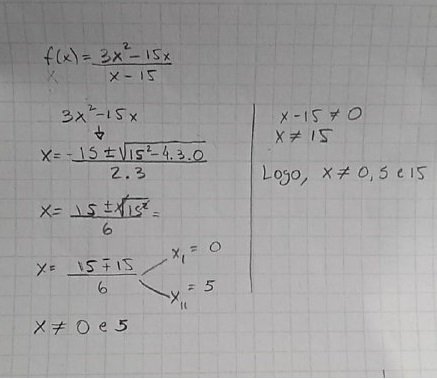 f(x) = 3x² - 15x / x - 15
3x² - 15x
↓
x = -15 ± √15² - 4.3.0 / 2.3
x = 15 ± √15² / 6 =
x = 15 ∓ 15 / 6
x₁ = 0
x₁₁ = 5
x ≠ 0 e 5
x - 15 ≠ 0
x ≠ 15
Logo, x ≠ 0, 5 e 15